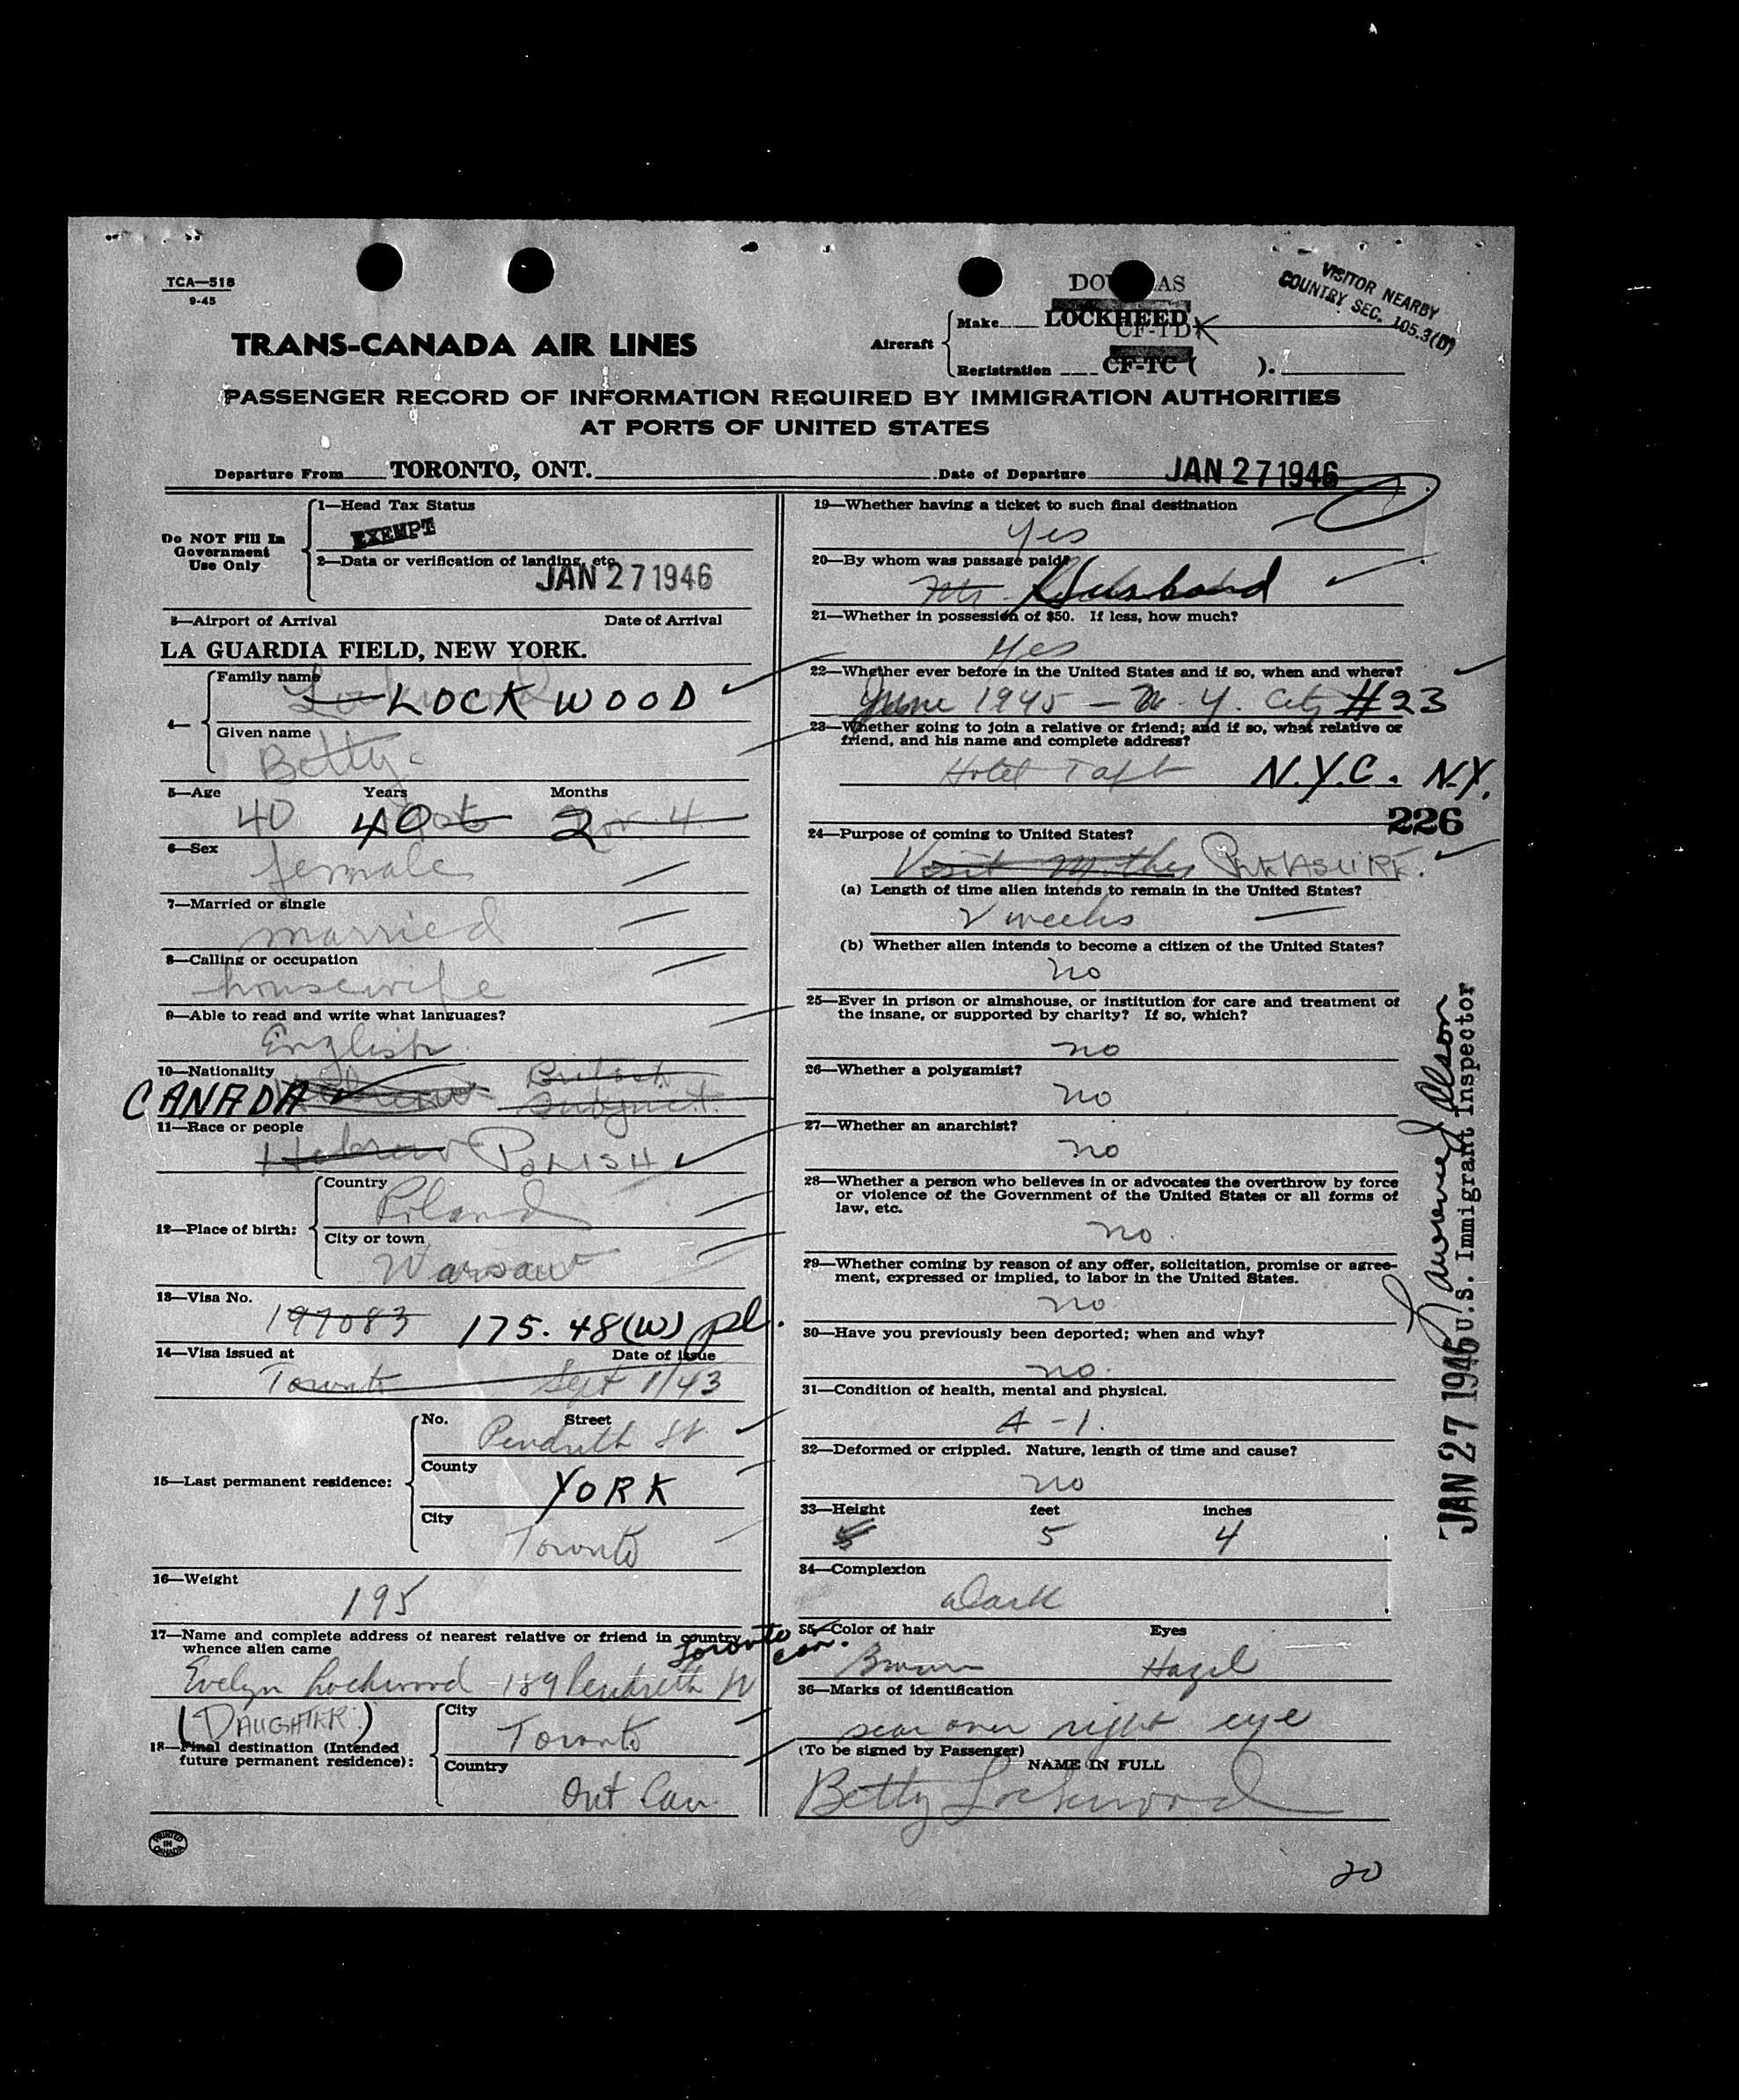 TCA—518
9-45
VISITOR NEARBY
COUNTRY SEC. 105.3(D)
TRANS-CANADA AIR LINES
Aircraft
Make LOCKHEED
Registration CF-TC ( ).
PASSENGER RECORD OF INFORMATION REQUIRED BY IMMIGRATION AUTHORITIES
AT PORTS OF UNITED STATES
Departure From TORONTO, ONT. Date of Departure JAN 27 1946
Do NOT Fill In
Government
Use Only
1—Head Tax Status
EXEMPT
2—Data or verification of landing, etc.
JAN 27 1946
3—Airport of Arrival Date of Arrival
LA GUARDIA FIELD, NEW YORK.
4—
Family name
LOCKWOOD
Given name
Betty
5—Age Years Months
40 40 2
6—Sex
female
7—Married or single
married
8—Calling or occupation
housewife
9—Able to read and write what languages?
English
10—Nationality
British
CANADA subject
11—Race or people
Hebrew POLISH
12—Place of birth:
Country
Poland
City or town
Warsaw
13—Visa No.
197083 175.48(W) pl.
14—Visa issued at Date of issue
Toronto Sept 1/43
15—Last permanent residence:
No. Street
Pendrith St
County
YORK
City
Toronto
16—Weight
195
17—Name and complete address of nearest relative or friend in country
whence alien came
Toronto
can.
Evelyn Lockwood 189 Pendrith
(DAUGHTER)
18—Final destination (Intended
future permanent residence):
City
Toronto
Country
Ont Can
PRINTED
IN
CANADA
19—Whether having a ticket to such final destination
Yes
20—By whom was passage paid?
Husband
21—Whether in possession of $50. If less, how much?
Yes
22—Whether ever before in the United States and if so, when and where?
June 1945 — N. Y. City #23
23—Whether going to join a relative or friend; and if so, what relative or
friend, and his name and complete address?
Hotel Taft N.Y.C. N.Y.
226
24—Purpose of coming to United States?
Visit Mother PLEASURE.
(a) Length of time alien intends to remain in the United States?
2 weeks
(b) Whether alien intends to become a citizen of the United States?
no
25—Ever in prison or almshouse, or institution for care and treatment of
the insane, or supported by charity? If so, which?
no
26—Whether a polygamist?
no
27—Whether an anarchist?
no
28—Whether a person who believes in or advocates the overthrow by force
or violence of the Government of the United States or all forms of
law, etc.
no
29—Whether coming by reason of any offer, solicitation, promise or agree-
ment, expressed or implied, to labor in the United States.
no
30—Have you previously been deported; when and why?
no.
31—Condition of health, mental and physical.
A-1.
32—Deformed or crippled. Nature, length of time and cause?
no
33—Height feet inches
5 5 4
34—Complexion
dark
35—Color of hair Eyes
Brown Hazel
36—Marks of identification
scar over right eye
(To be signed by Passenger)
NAME IN FULL
Betty Lockwood
20
JAN 27 1946 U.S. Immigrant Inspector